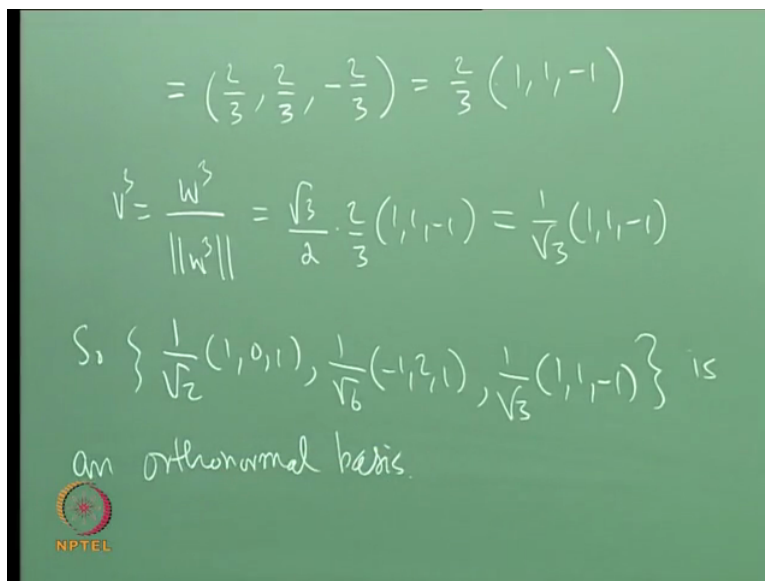 = (2/3, 2/3, -2/3) = 2/3 (1, 1, -1)
v³ = w³/||w³|| = √3/2 · 2/3 (1, 1, -1) = 1/√3 (1, 1, -1)
So { 1/√2 (1, 0, 1), 1/√6 (-1, 2, 1), 1/√3 (1, 1, -1) } is
an orthonormal basis.
NPTEL